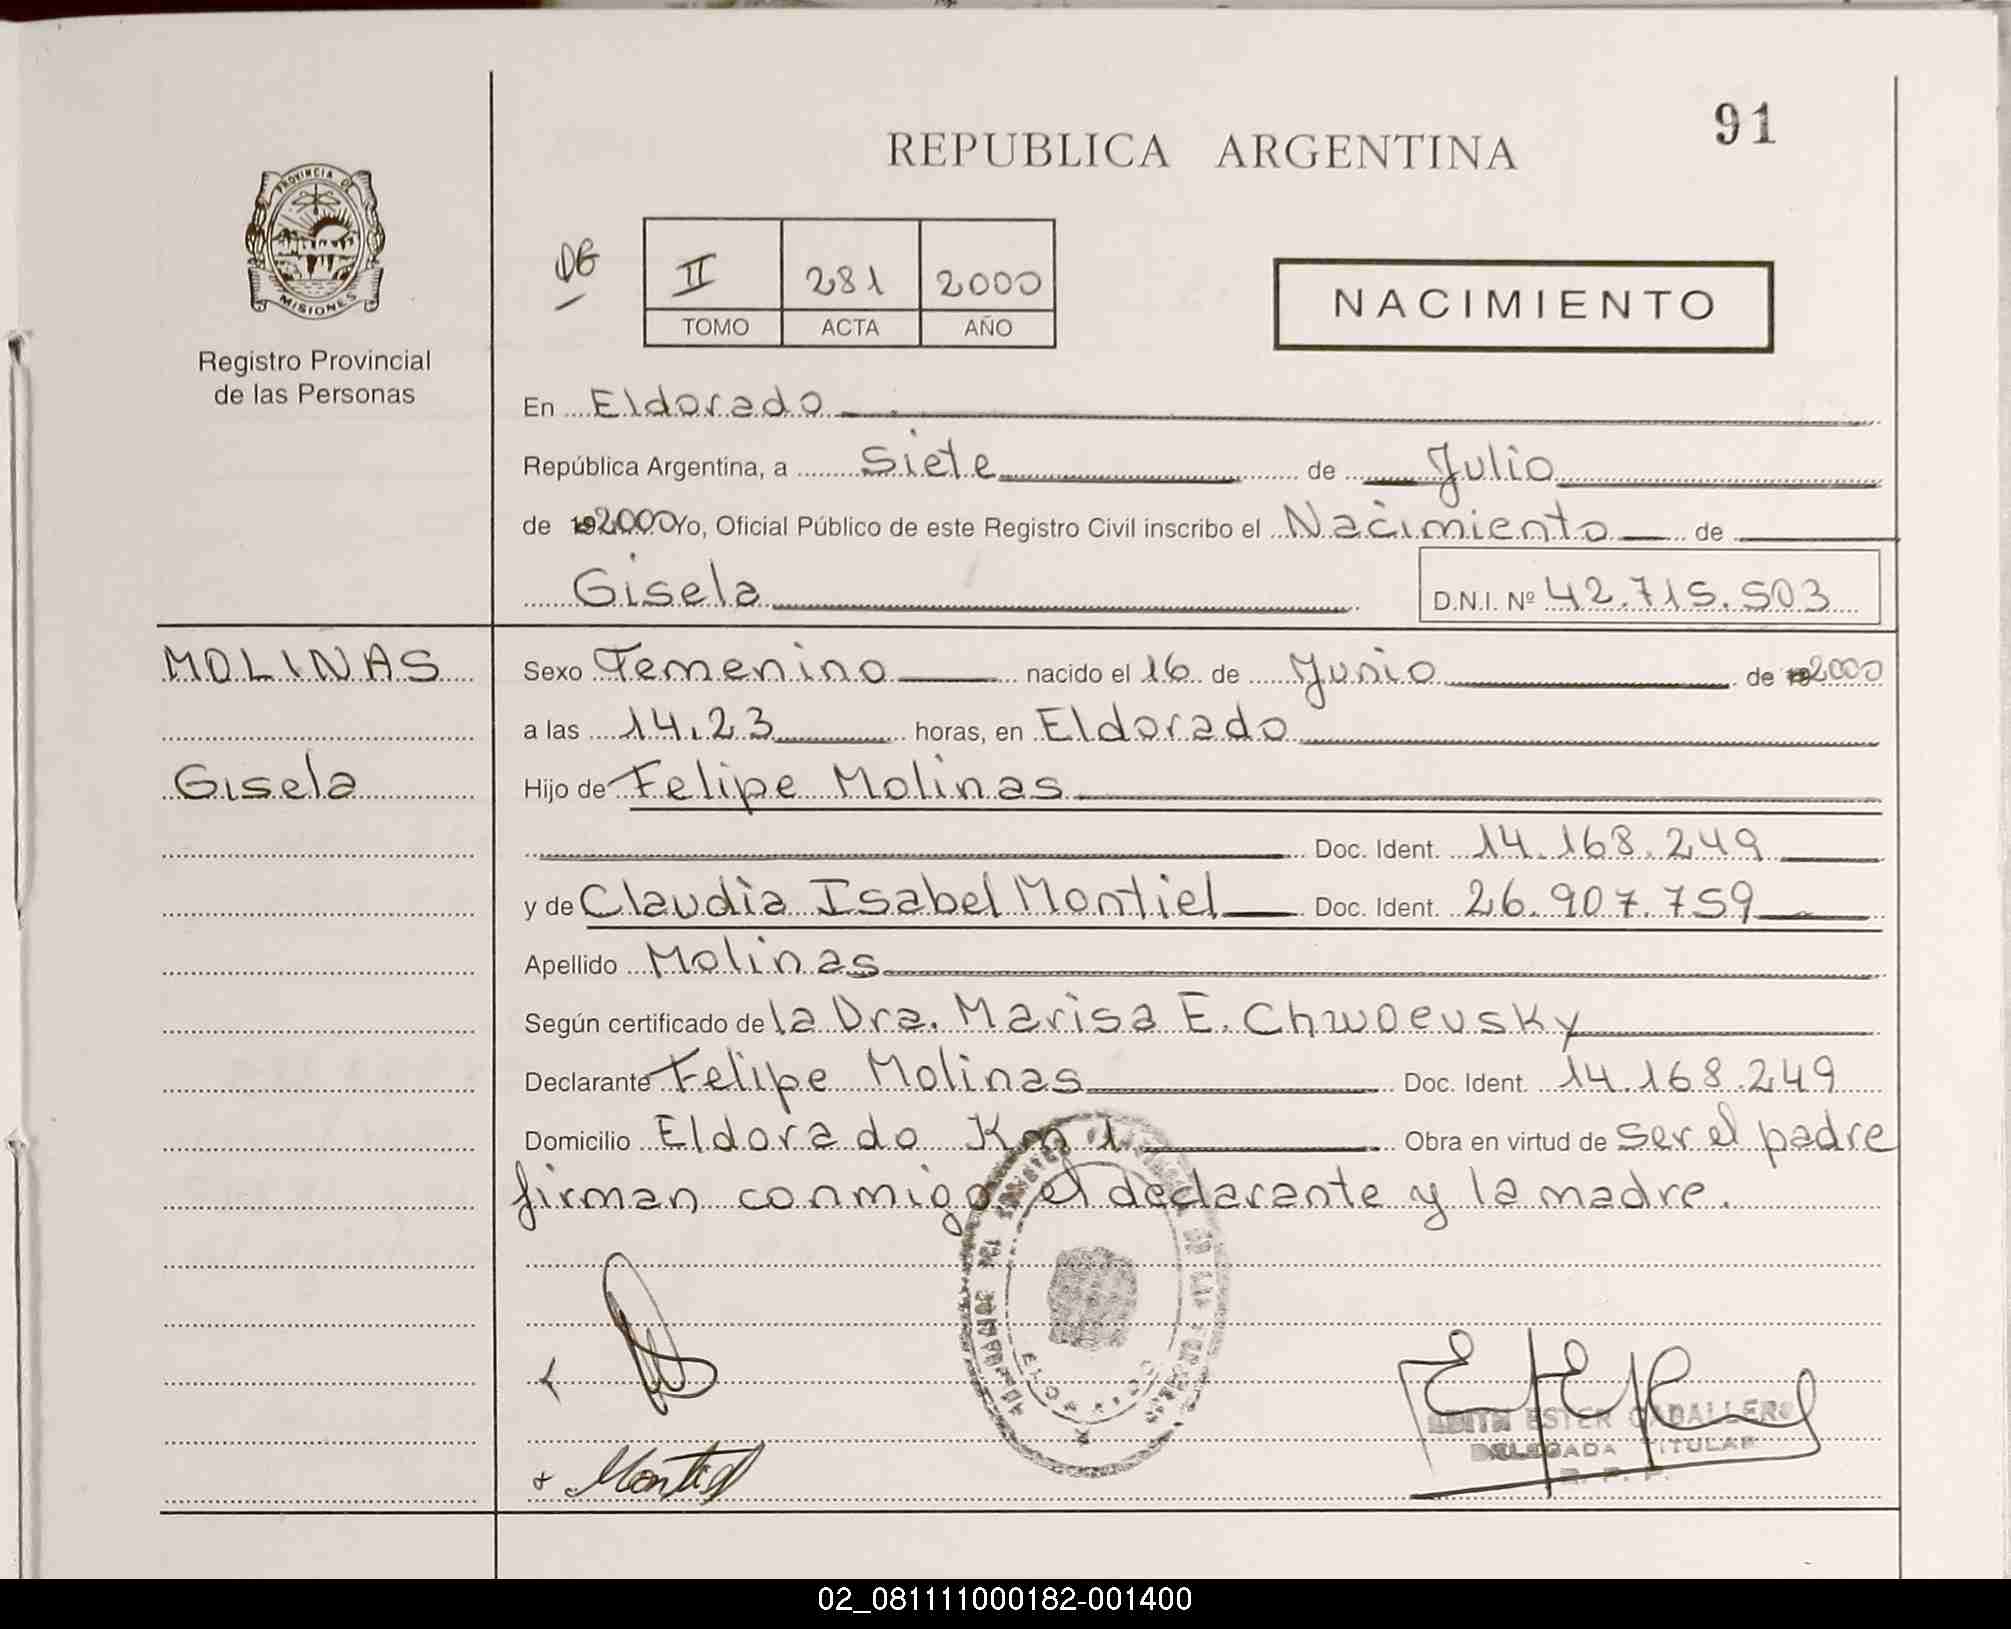 91
REPUBLICA ARGENTINA
PROVINCIA DE
MISIONES
Registro Provincial
de las Personas
DG
II 281 2000
TOMO ACTA AÑO
NACIMIENTO
En Eldorado
República Argentina, a Siete de Julio
de 192000 Yo, Oficial Público de este Registro Civil inscribo el Nacimiento de
Gisela D.N.I. Nº 42.715.503
MOLINAS
Gisela
Sexo Femenino nacido el 16 de Junio de 192000
a las 14.23 horas, en Eldorado
Hijo de Felipe Molinas
Doc. Ident. 14.168.249
y de Claudia Isabel Montiel Doc. Ident. 26.907.759
Apellido Molinas
Según certificado de la Dra. Marisa E. Chwoevsky
Declarante Felipe Molinas Doc. Ident. 14.168.249
Domicilio Eldorado Km 1 Obra en virtud de ser el padre
firman conmigo el declarante y la madre.
ELDORADO
EDITH ESTER CABALLERO
DELEGADA TITULAR
R. P. P.
Montiel
02_081111000182-001400